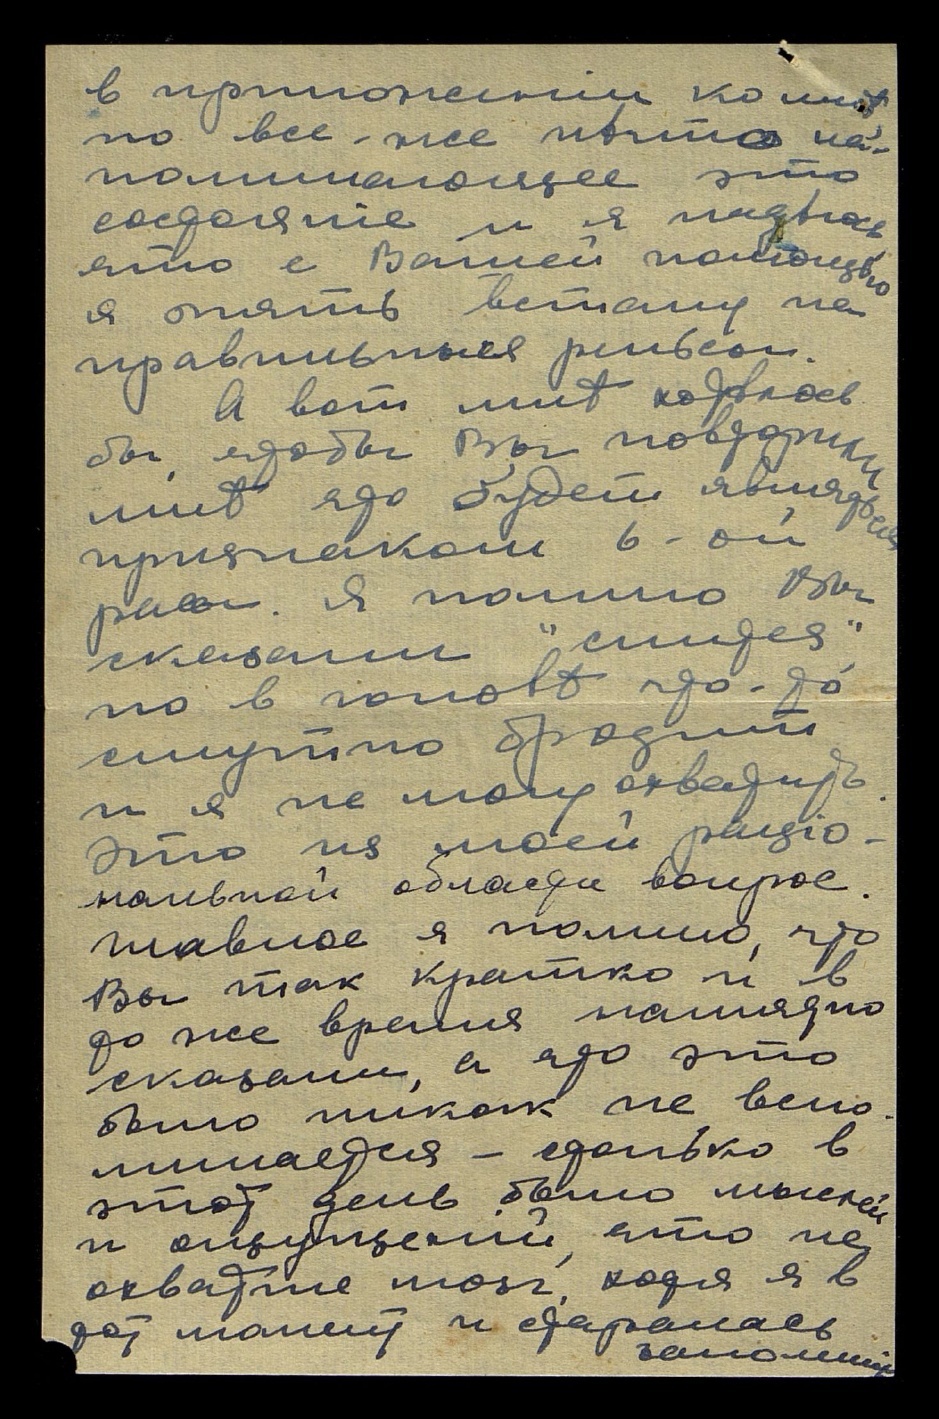 в приложеніи ко мнѣ
но все-же нѣчто на-
поминающее это
состояніе и я надѣюсь
что с Вашей помощью
я опять встану на
правильныя рельсы.
А вот мнѣ хотѣлось
бы, чтобы Вы повторили
мнѣ что будет являться
признаком 6-ой
расы. Я помню Вы
сказали "синтез"
но в головѣ что-то
смутно бродит
и я не могу охватить.
Это из моей раціо-
нальной области вопрос.
Главное я помню, что
Вы так кратко и в
то же время наглядно
сказали, а что это
было никак не вспо-
минается – столько в
этот день было мыслей
и ощущеній, что не
охватил мозг, хотя я в
тот момент и старалась
запомнить